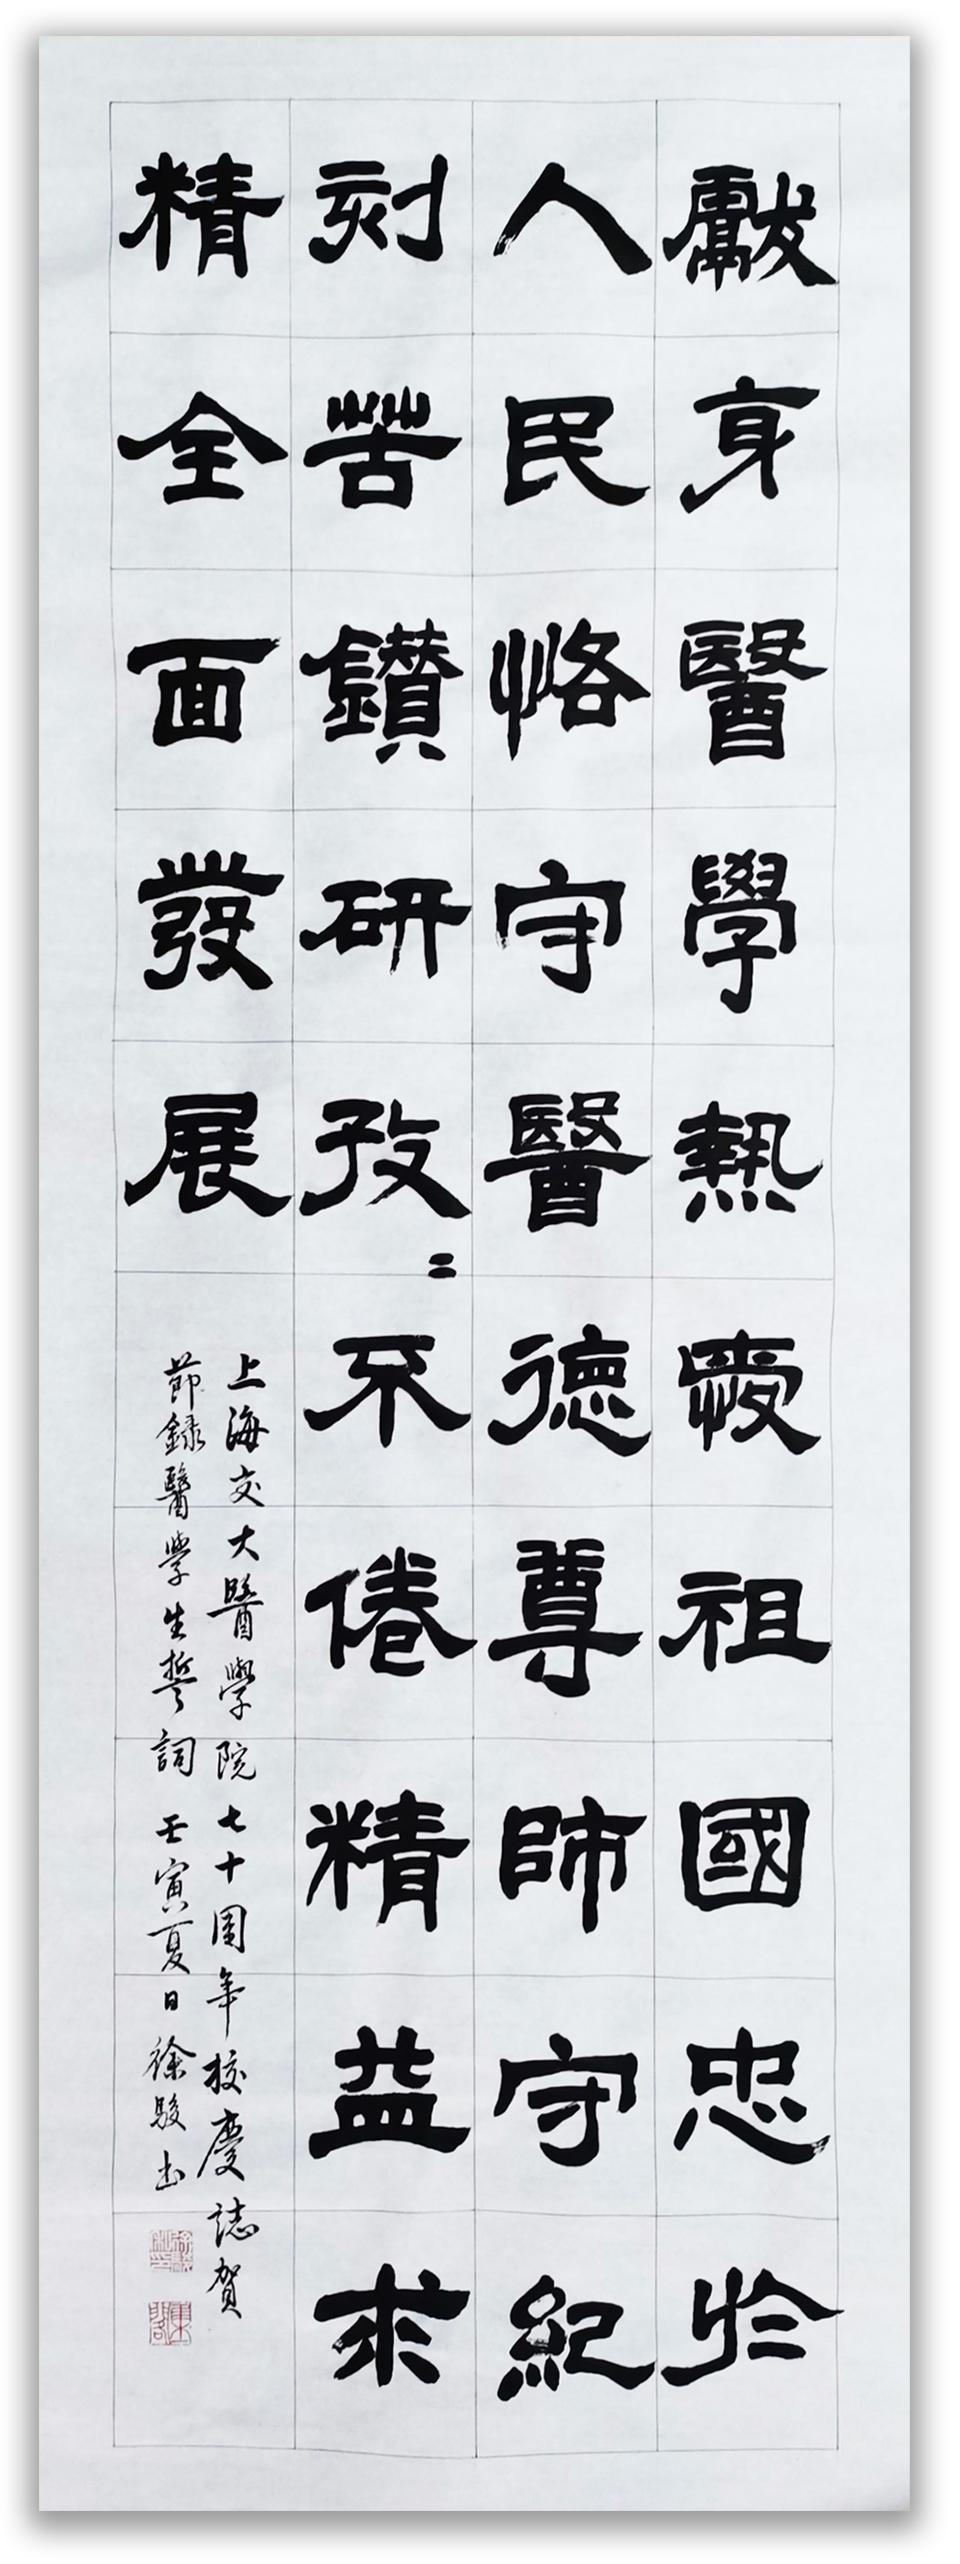 獻身醫學熱愛祖國忠於
人民恪守醫德尊師守紀
刻苦鑽研孜〻不倦精益求
精全面發展
上海交大醫學院七十周年校慶誌賀
節録醫學生誓詞壬寅夏日徐駿書